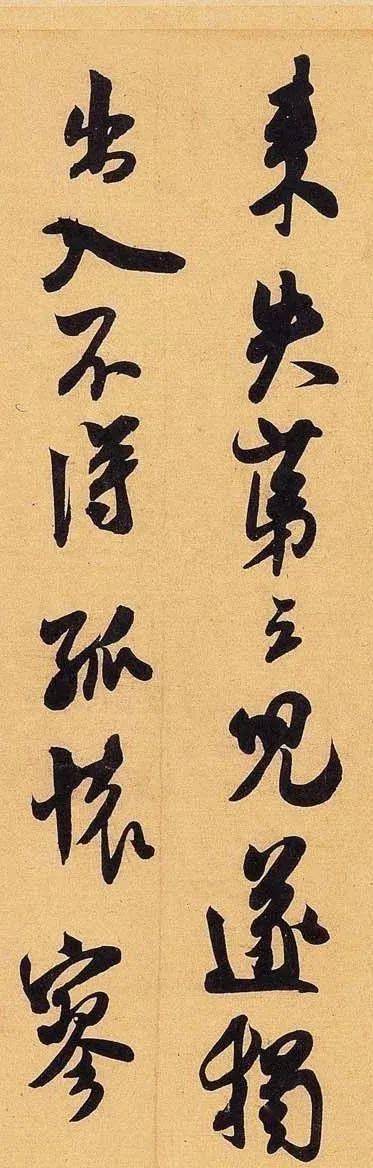 来失第三兒遂獨
出入不得孤懷寥